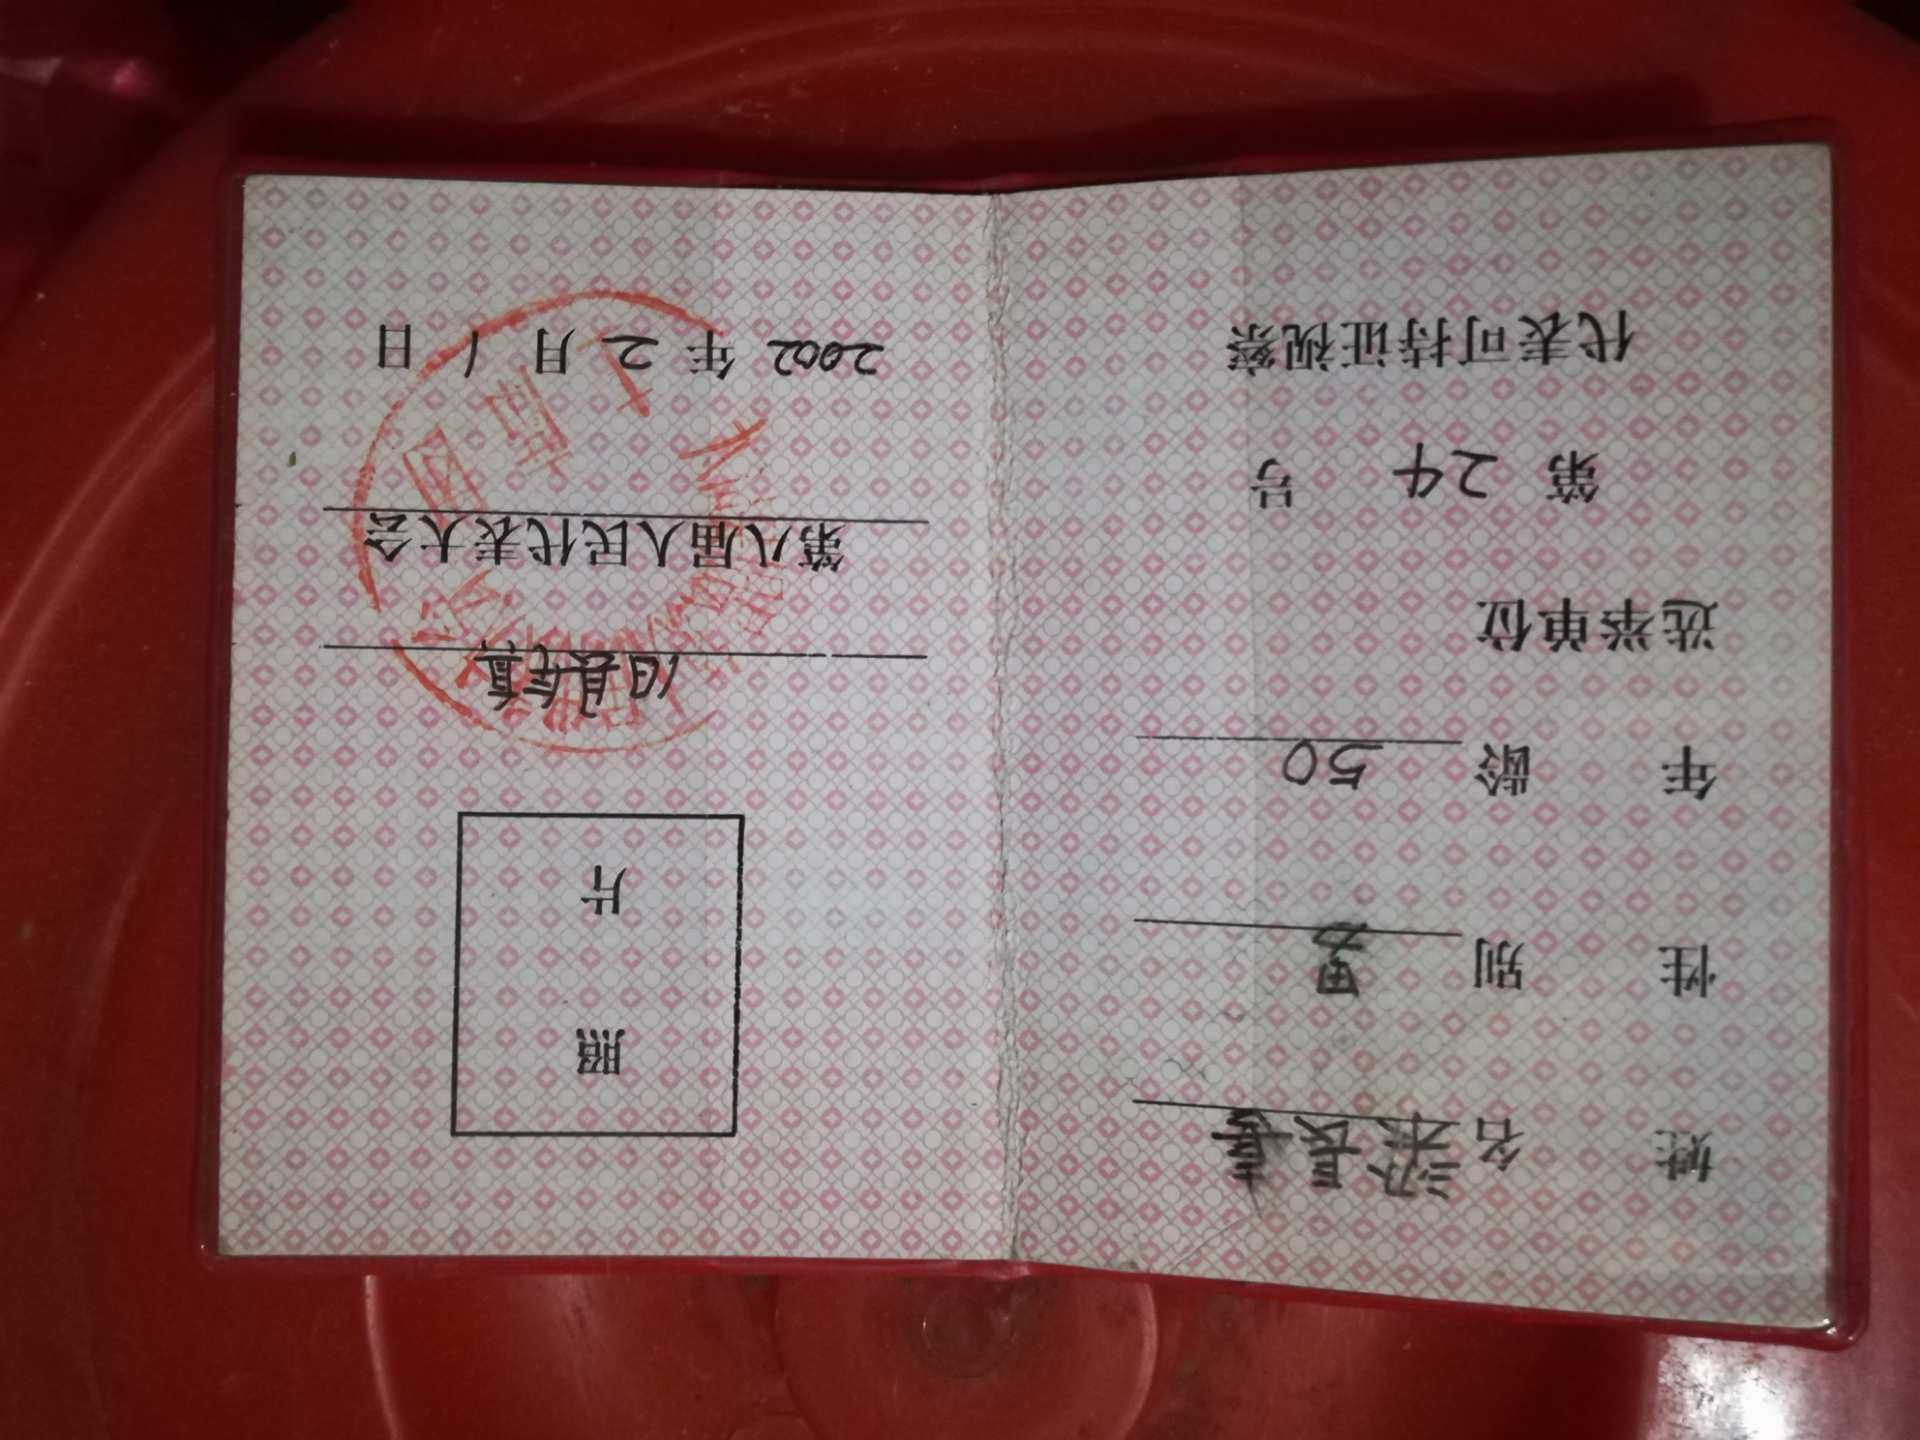 姓 名 梁长
性 别 男
年 龄 50
选举单位
第 24 号
代表可持证视察
照
片
旧县镇
第八届人民代表大会
2002 年 2 月 1 日